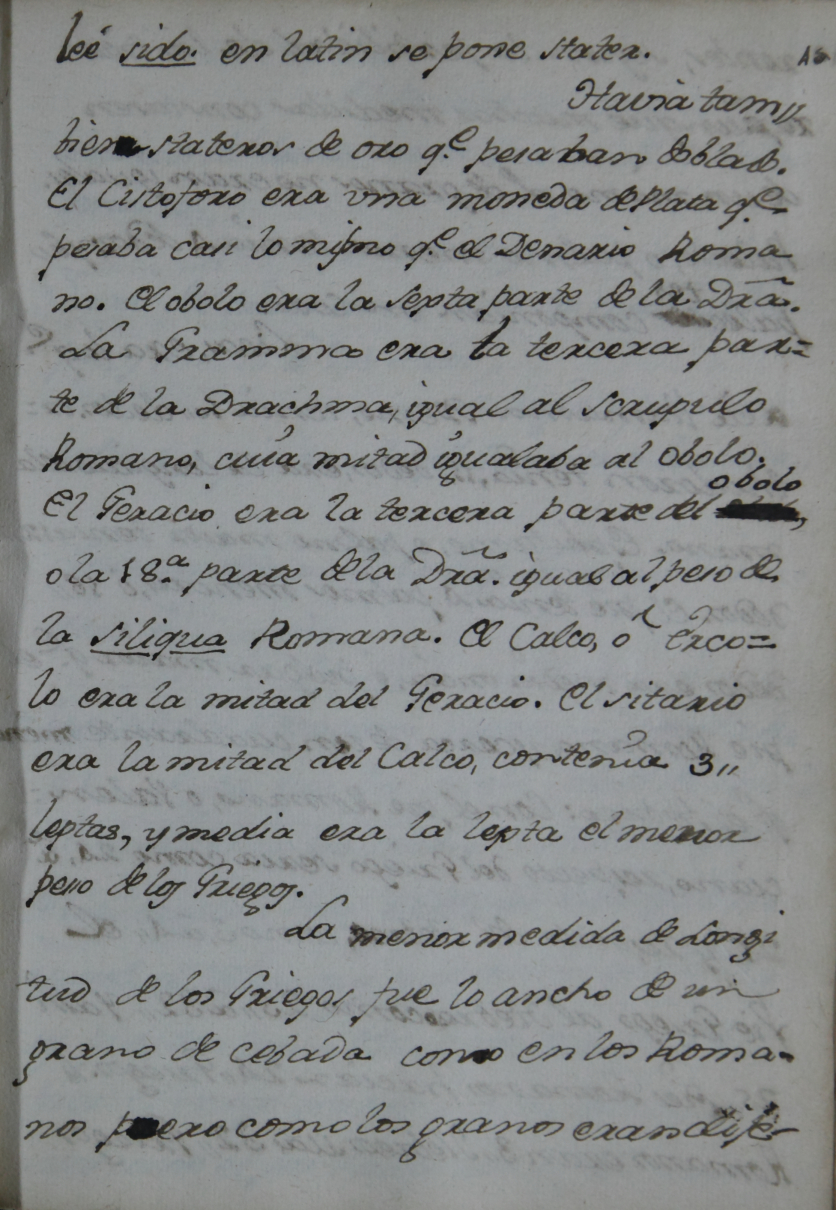 leé sido. en latin se pone stater.
Havia tam,,
bien stateros de oro q.e pesaban doblad.
El Cistoforo era vna moneda de Plata q.e
pesaba casi lo mismo q.e el Denario Roma
no. El obolo era la septa parte de la Dra.
La Gramma era la tercera par=
te de la Drachma, igual al scrupulo
Romano, cuia mitad igualaba al obolo.
El Ceracio era la tercera parte del obolo,
o la 18.a parte de la Dra. igual al peso de
la siliqua Romana. El Calco, o Erco=
lo era la mitad del Ceracio. El sitario
era la mitad del Calco, contenia 3,,
leptas, y media era la lepta el menor
peso de los Griegos.
La menor medida de Longi
tud de los Griegos fue lo ancho de un
grano de cebada como en los Roma-
nos puero como los granos eran dife-